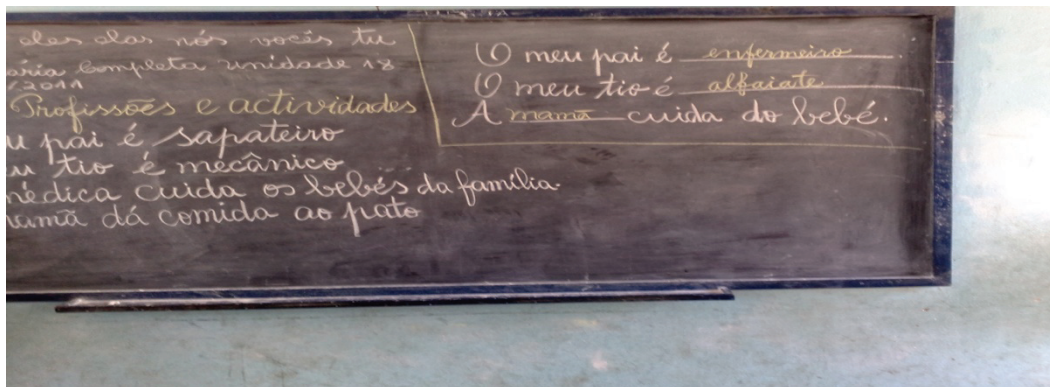 eles elas nós vocês tu
ária completa unidade 18
/2011
Profissões e actividades
u pai é sapateiro
u tio é mecânico
médica cuida os bebés da família.
mamã dá comida ao pato
O meu pai é enfermeiro.
O meu tio é alfaiate
A mamã cuida do bebé.